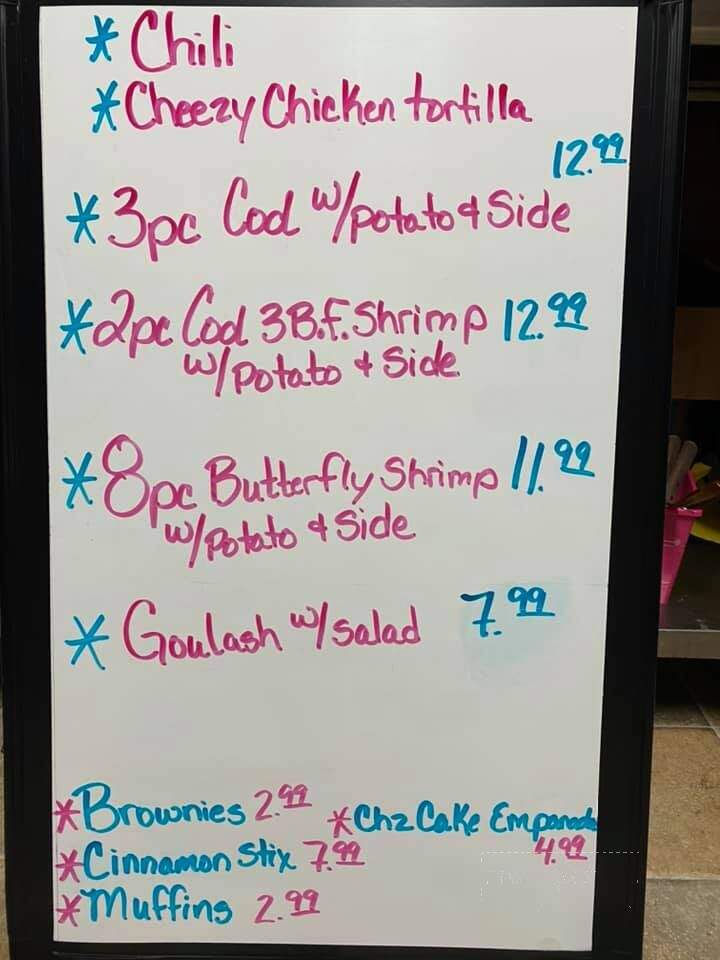 * Chili
* Cheezy Chicken tortilla
12.99
* 3pc Cod w/potato & Side
* 2pc Cod 3 B.f. Shrimp 12.99
w/Potato & Side
* 8pc Butterfly Shrimp 11.99
w/Potato & Side
* Goulash w/salad 7.99
* Brownies 2.99 * Chz Cake Empanada
4.99
* Cinnamon Stix 7.99
* Muffins 2.99